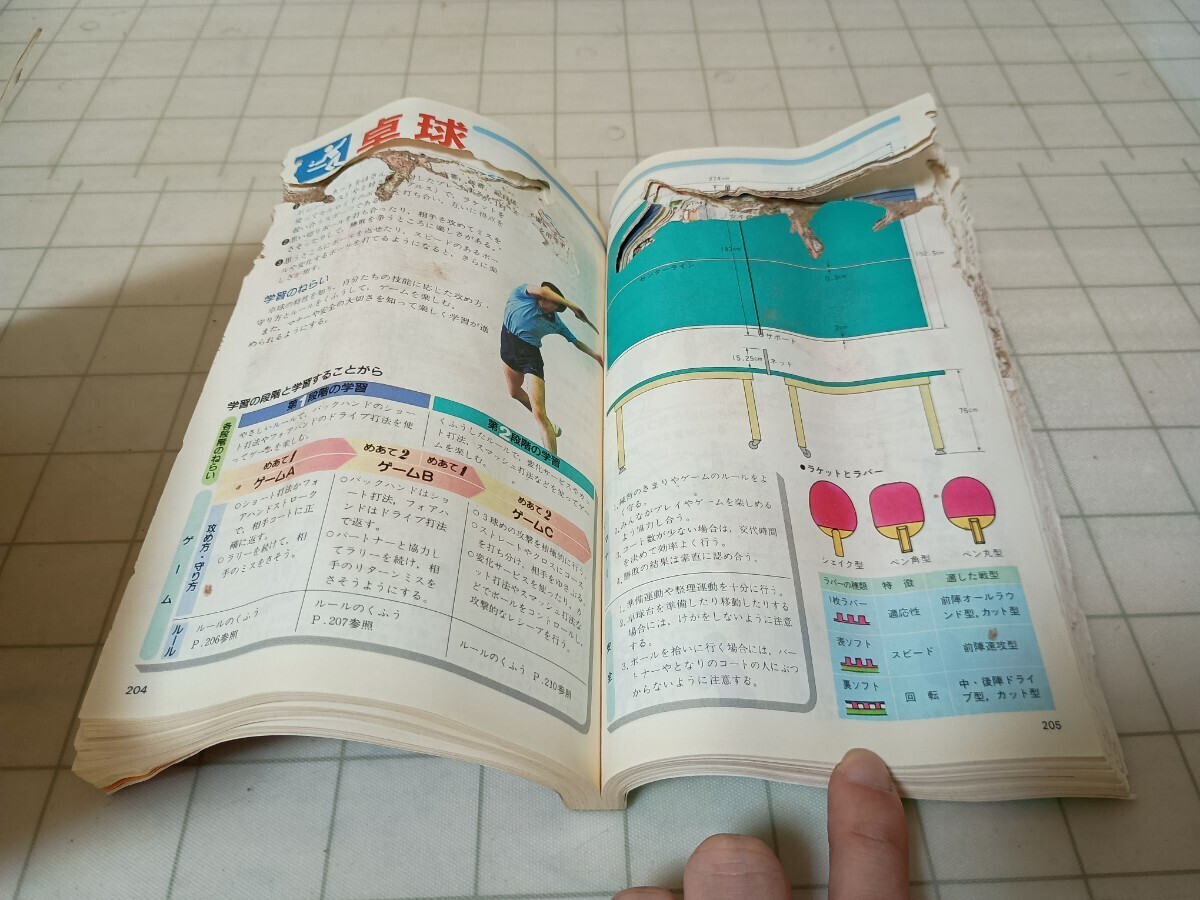 卓球
ルス）で，ラケットを
打ち合い，互いに得点を
思い切りボールを打ち合ったり，相手を攻めてミスを
させたりして，勝敗を争うところに楽しさがある。
思うところにボールを返せたり，スピードのあるボー
ルや変化するボールを打てるようになると，さらに楽
しさが増す。
学習のねらい
卓球の特性を知り，自分たちの技能に応じた攻め方・
守り方とルールをくふうして，ゲームを楽しむ。
また，マナーや安全の大切さを知って楽しく学習が進
められるようにする。
学習の段階と学習することがら
各段階のねらい
第1段階の学習
やさしいルールで，バックハンドのショー
ト打法やフォアハンドのドライブ打法を使
ってゲームを楽しむ。
第2段階の学習
くふうしたルールで，変化サービスやカッ
ト打法，スマッシュ打法などを使ってゲー
ムを楽しむ。
めあて1
ゲームA
めあて2 めあて1
ゲームB
めあて2
ゲームC
ゲーム
攻め方・守り方
○ショート打法かフォ
アハンドストローク
で，相手コートに正
確に返す。
○ラリーを続けて，相
手のミスをさそう。
○バックハンドはショ
ート打法，フォアハ
ンドはドライブ打法
で返す。
○パートナーと協力し
てラリーを続け，相
手のリターンミスを
さそうようにする。
○3球めの攻撃を積極的に行う。
○ストレートやクロスにコース
を打ち分け，相手をゆさぶる。
○変化サービスを使ったり，カ
ット打法やスマッシュ打法な
どでボールをコントロールし，
攻撃的なレシーブを行う。
ルール
ルールのくふう
P.206参照
ルールのくふう
P.207参照
ルールのくふう P.210参照
204
274cm
センターライン
152.5cm
0.3cm
2cm
サポート
15.25cm
ネット
76cm
練習のきまりやゲームのルールをよ
く守る。
みんながプレイやゲームを楽しめる
よう協力し合う。
コート数が少ない場合は，交代時間
を決めて効率よく行う。
勝敗の結果は素直に認め合う。
1.準備運動や整理運動を十分に行う。
2.卓球台を準備したり移動したりする
場合には，けがをしないように注意
する。
3.ボールを拾いに行く場合には，パー
トナーやとなりのコートの人にぶつ
からないように注意する。
●ラケットとラバー
シェイク型
ペン角型
ペン丸型
ラバーの種類 特徴 適した戦型
1枚ラバー 適応性 前陣オールラウ
ンド型，カット型
表ソフト スピード 前陣速攻型
裏ソフト 回転 中・後陣ドライ
ブ型，カット型
205